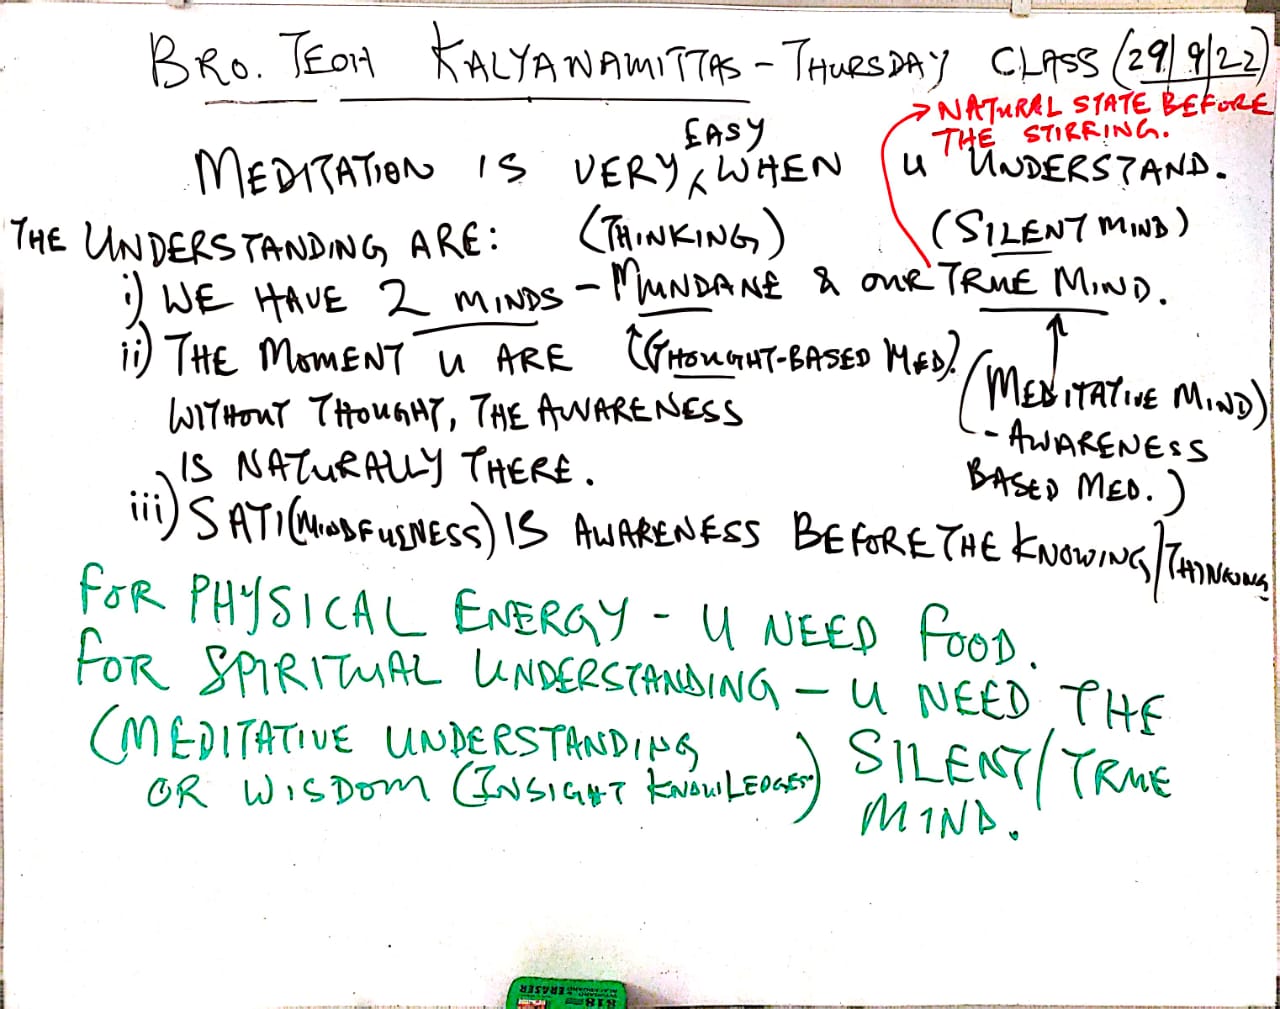 BRO. TEOH KALYANAMITTAS - THURSDAY CLASS (29/9/22)
→ NATURAL STATE BEFORE
THE STIRRING.
EASY
MEDITATION IS VERY ^ WHEN U UNDERSTAND.
THE UNDERSTANDING ARE: (THINKING) (SILENT MIND)
i) WE HAVE 2 MINDS - MUNDANE & OUR TRUE MIND.
ii) THE MOMENT U ARE (THOUGHT-BASED MED). (MEDITATIVE MIND)
WITHOUT THOUGHT, THE AWARENESS - AWARENESS
IS NATURALLY THERE. BASED MED.)
iii) SATI (MINDFULNESS) IS AWARENESS BEFORE THE KNOWING/THINKING
FOR PHYSICAL ENERGY - U NEED FOOD.
FOR SPIRITUAL UNDERSTANDING - U NEED THE
(MEDITATIVE UNDERSTANDING SILENT/TRUE
OR WISDOM (INSIGHT KNOWLEDGES) MIND.
ERASER
818